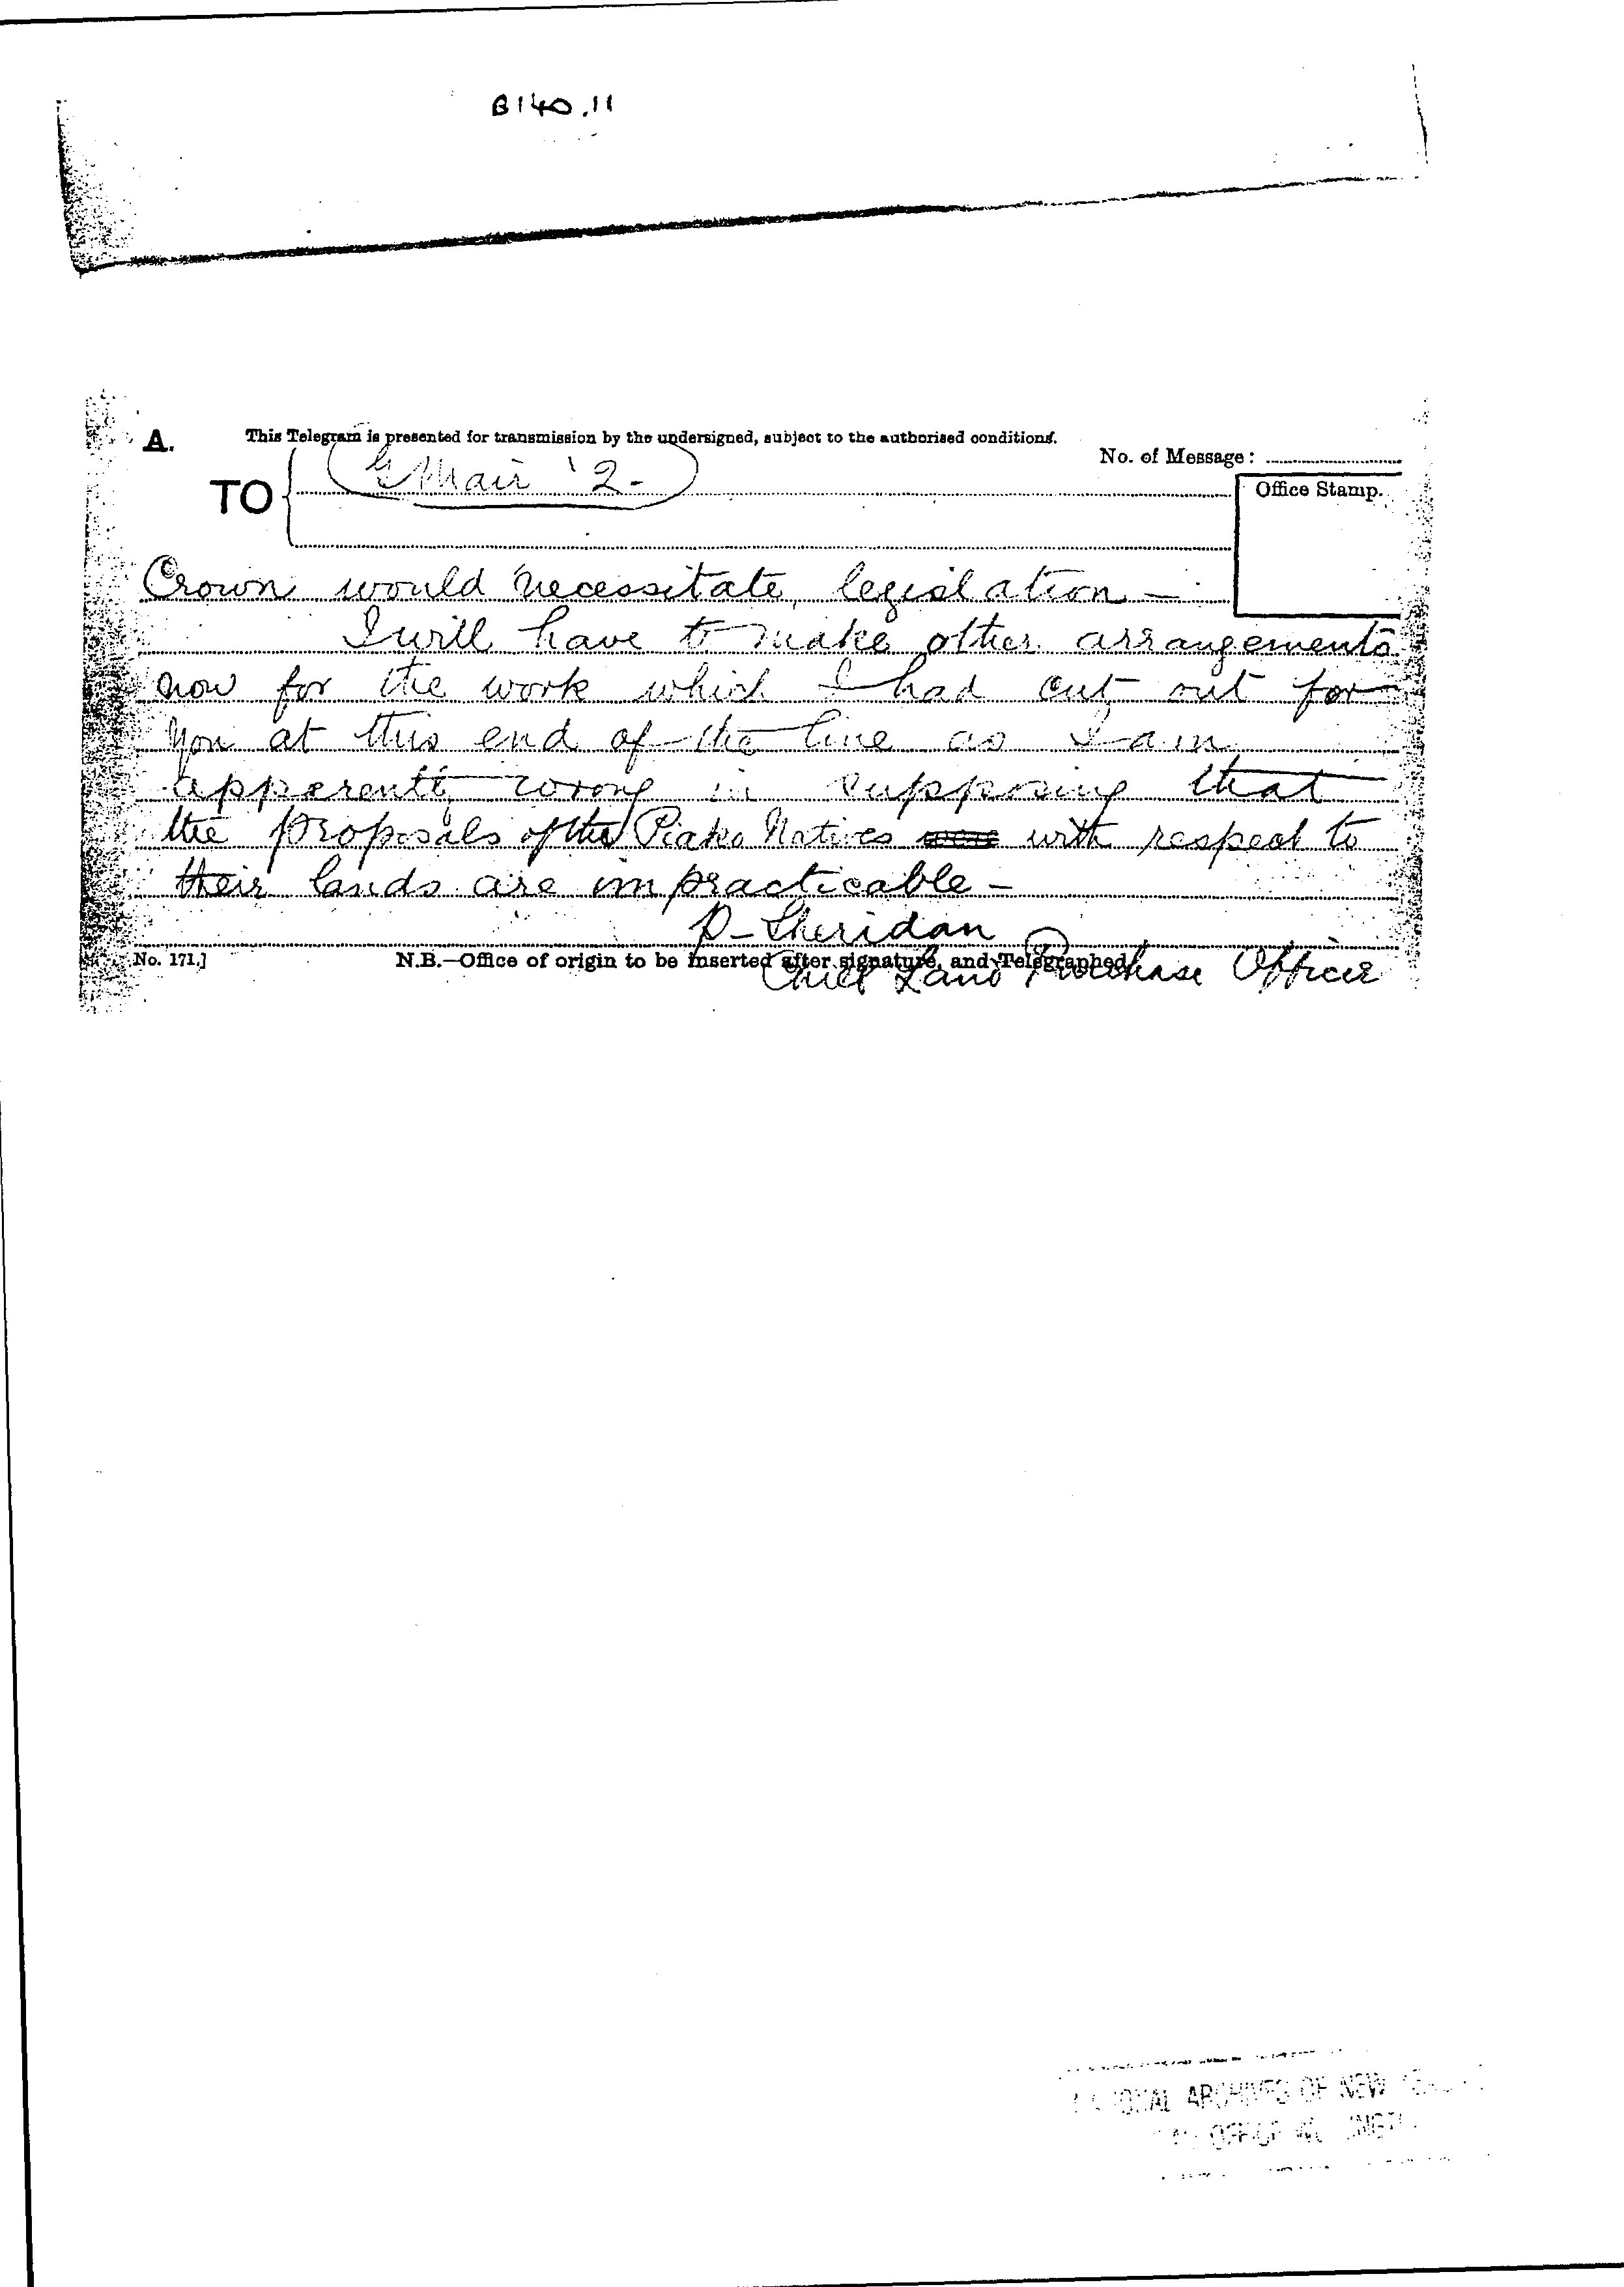 B140.11
A. This Telegram is presented for transmission by the undersigned, subject to the authorised conditions.
No. of Message:
TO G Mair 2-
Office Stamp.
Crown would necessitate legislation -
I will have to make other arrangements
now for the work which I had cut out for
you at this end of the line as I am
apparently wrong in supposing that
the proposals of the Piako Natives were with respect to
their lands are impracticable -
P- Sheridan
No. 171.] N.B.—Office of origin to be inserted after signature, and Telegraphed.
Chief Land Purchase Officer
ARCHIVES OF NEW
OFFICE